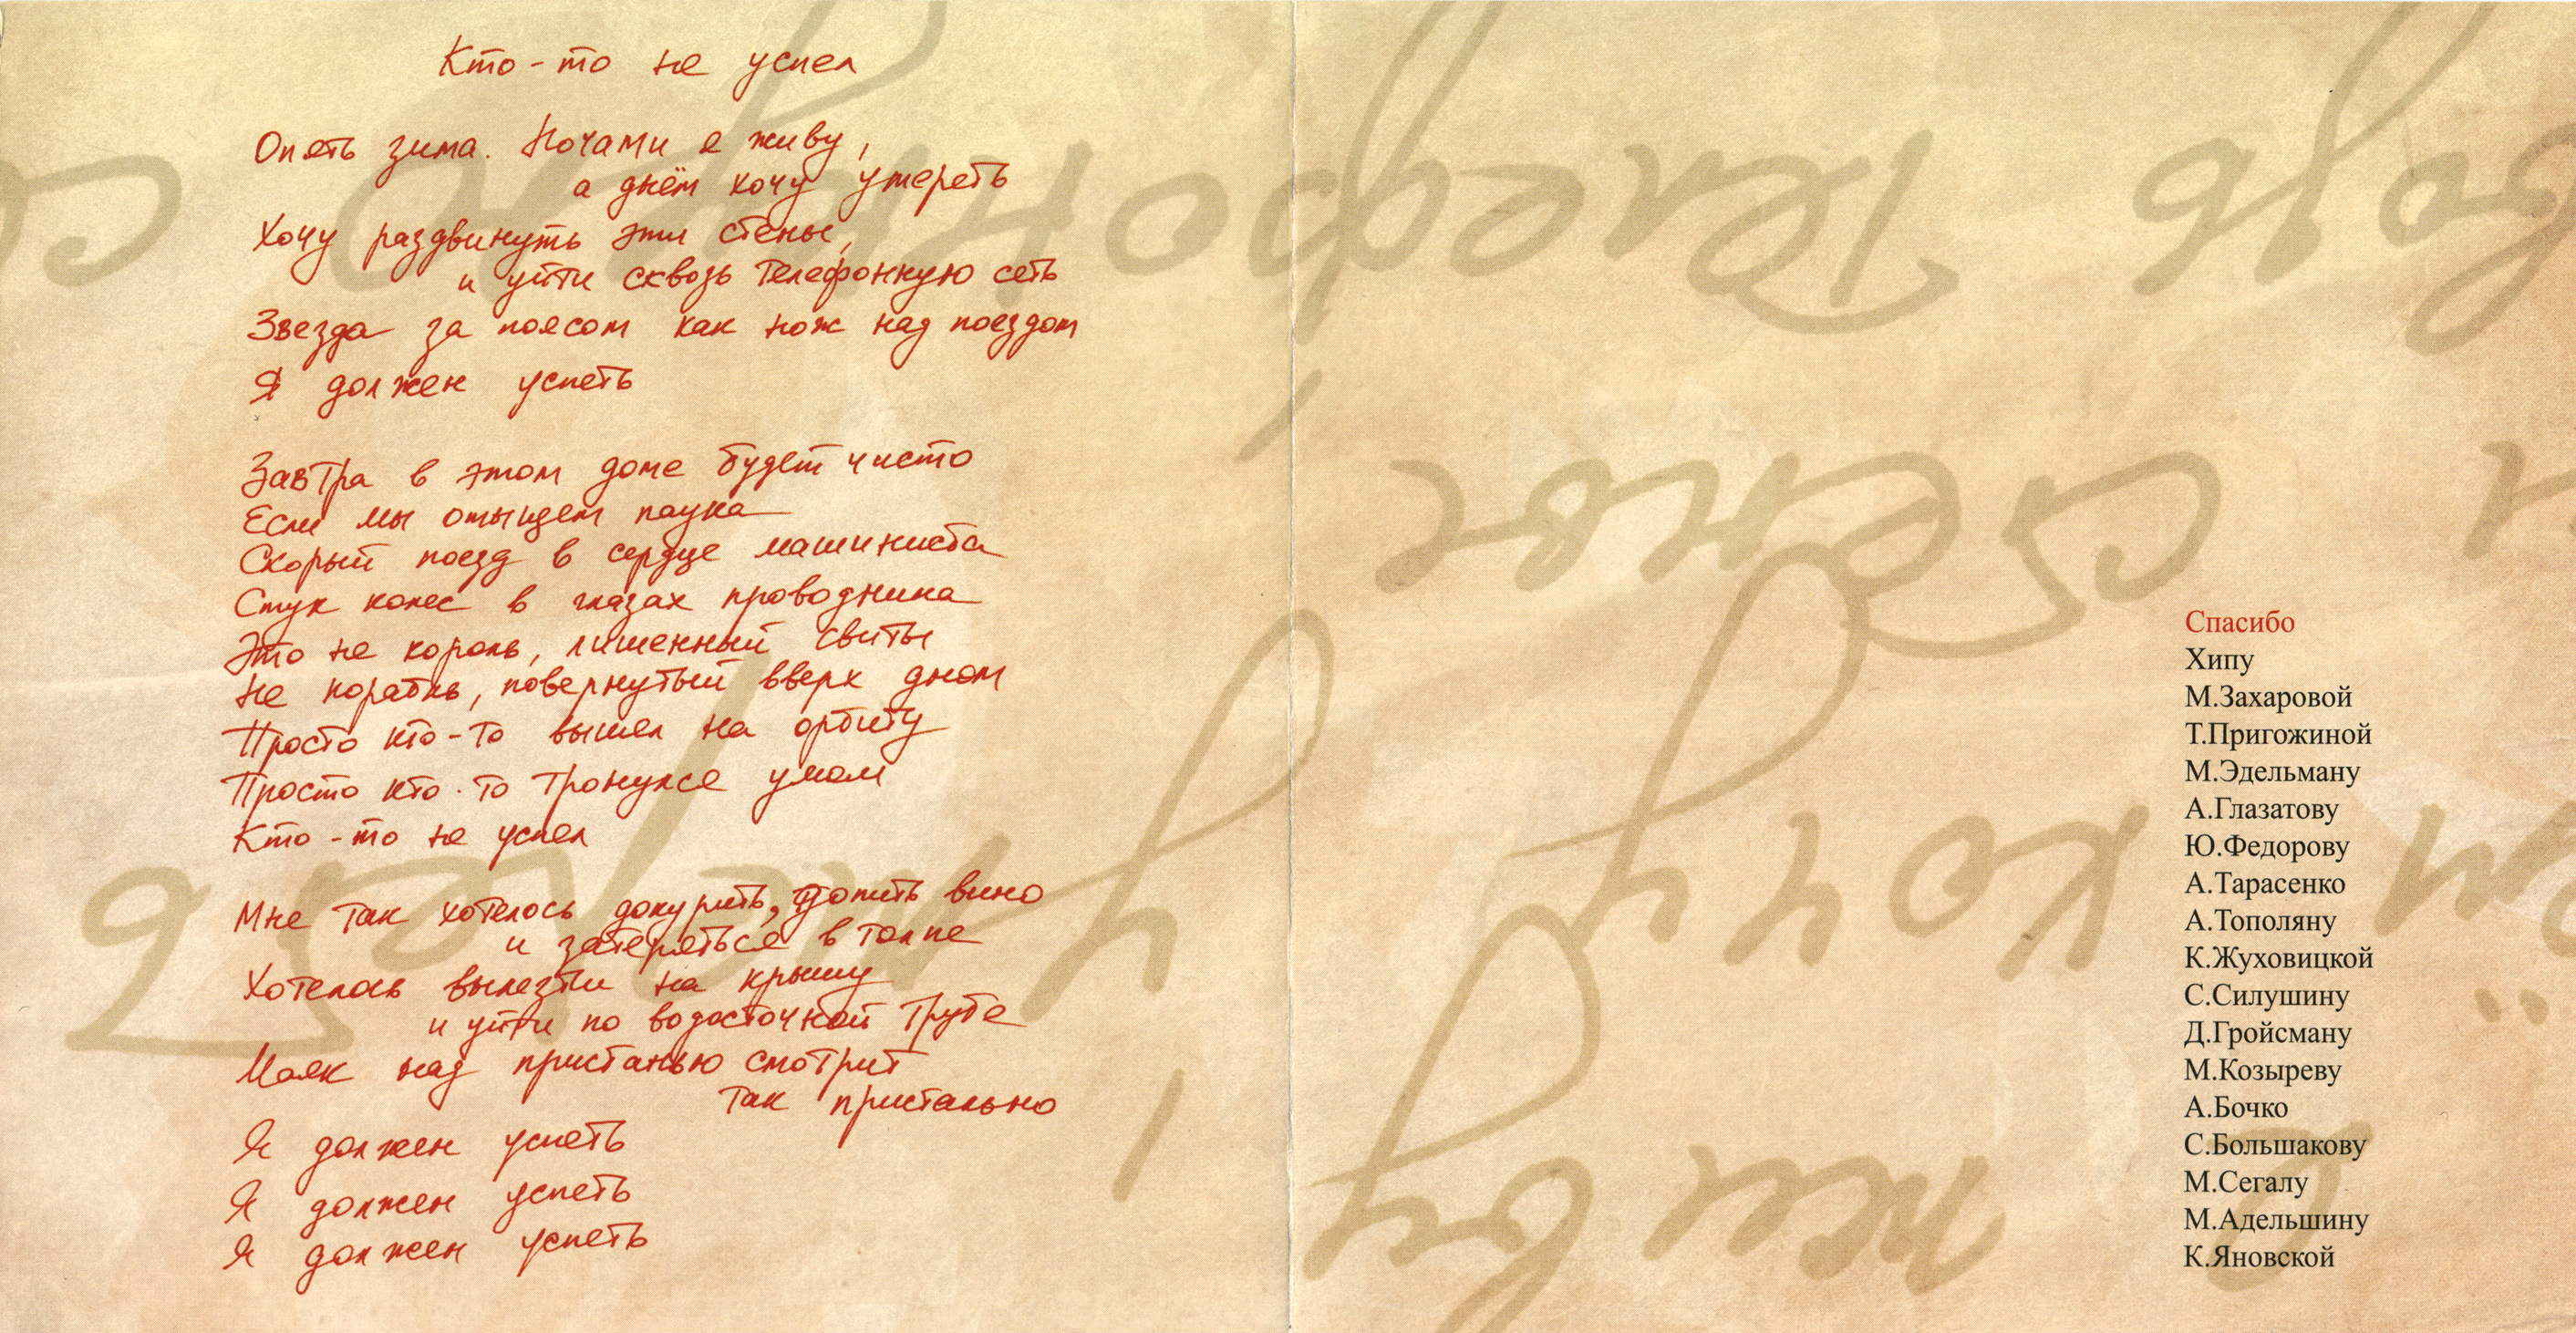 Кто-то не успел
Опять зима. Ночами я живу,
а днём хочу умереть
Хочу раздвинуть эти стены,
и уйти сквозь телефонную сеть
Звезда за поясом как нож над поездом
Я должен успеть
Завтра в этом доме будет чисто
Если мы отыщем паука
Скорый поезд в сердце машиниста
Стук колес в глазах проводника
Это не король, лишенный свиты
Не корабль, повернутый вверх дном
Просто кто-то вышел на орбиту
Просто кто-то тронулся умом
Кто-то не успел
Мне так хотелось докурить, допить вино
и затеряться в толпе
Хотелось вылезти на крышу
и уйти по водосточной трубе
Маяк над пристанью смотрит
так пристально
Я должен успеть
Я должен успеть
Я должен успеть
Спасибо
Хипу
М.Захаровой
Т.Пригожиной
М.Эдельману
А.Глазатову
Ю.Федорову
А.Тарасенко
А.Тополяну
К.Жуховицкой
С.Силушину
Д.Гройсману
М.Козыреву
А.Бочко
С.Большакову
М.Сегалу
М.Адельшину
К.Яновской